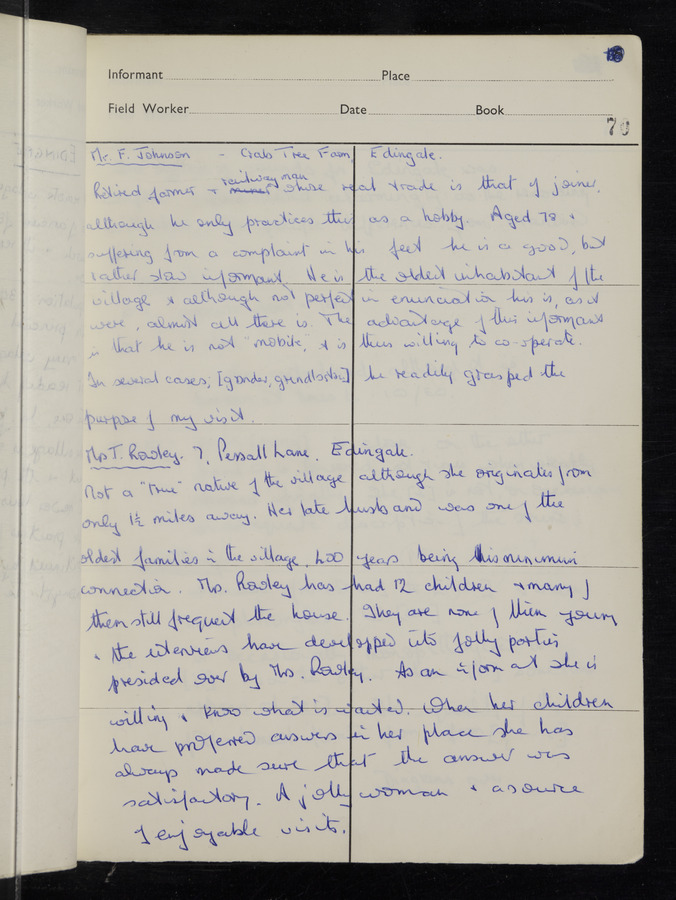 Informant Place
Field Worker Date Book
70
Mr. F. Johnson - Crab Tree Farm, Edingale.
railway man
Retired farmer + whose real trade is that of joiner,
although he only practices this as a hobby. Aged 78 +
suffering from a complaint in his feet he is a good, but
rather slow informant. He is the oldest inhabitant of the
village + although not perfect in enunciation his is, as it
were, almost all there is. The advantage of this informant
is that he is not "mobile," + is thus willing to co-operate.
In several cases, [gander, grindlestone] he readily grasped the
purpose of my visit.
Mrs T. Rowley. 7, Pessall Lane, Edingale.
Not a "true" native of the village although she originates from
only 1½ miles away. Her late husband was one of the
oldest families in the village, 400 years being his minimum
connection. Mrs. Rowley has had 12 children + many of
them still frequent the house. They are none of them young
+ the interviews have developped into jolly parties
presided over by Mrs. Rowley. As an informant she is
willing + knows what is wanted. When her children
have proferred answers in her place she has
always made sure that the answer was
satisfactory. A jolly woman + a source
of enjoyable visits.